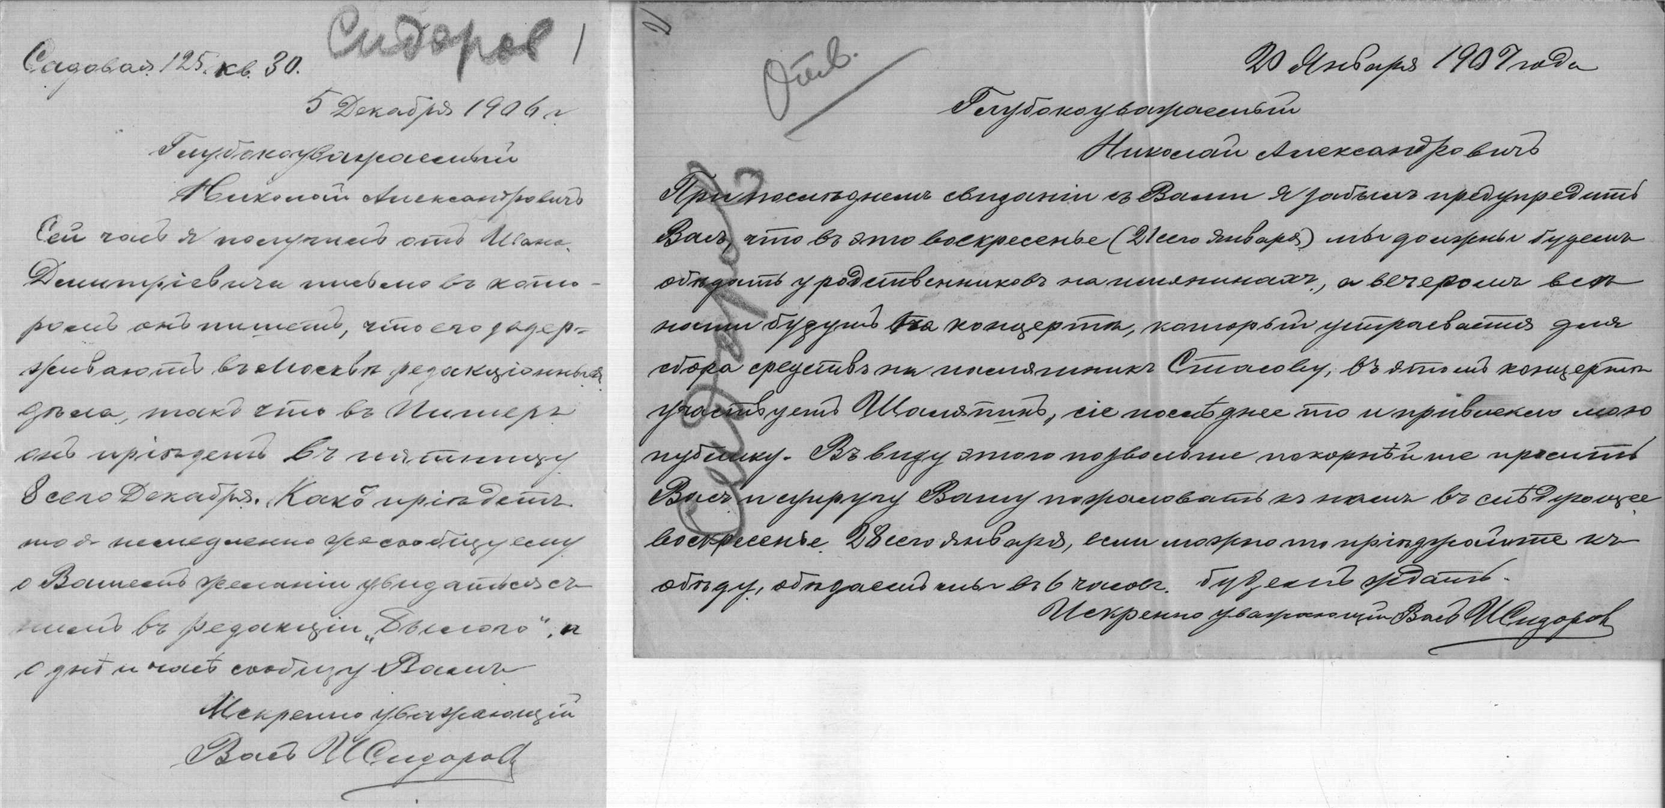 Сидоров 1
Садовая 125. кв. 30.
5 Декабря 1906 г.
Глубокоуважаемый
Николай Александровичъ
Сей часъ я получилъ отъ Ивана
Дмитріевича письмо въ кото-
ромъ онъ пишетъ, что его задер-
живаютъ въ Москвѣ редакціонныя
дѣла, такъ что въ Питеръ
онъ пріѣдетъ въ пятницу
8 сего Декабря. Какъ пріѣдетъ
то я немедленно же сообщу ему
о Вашемъ желаніи увидаться съ
нимъ въ редакціи „Былого", и
о днѣ и часѣ сообщу Вамъ
Искренно уважающій
Васъ ИСидоровъ
2)
Отв.
Сидоров
20 Января 1907 года
Глубокоуважаемый
Николай Александровичъ
При послѣднемъ свиданіи съ Вами я забылъ предупредить
Васъ, что въ это воскресенье (21 сего января) мы должны будемъ
обѣдать у родственниковъ на имянинахъ, а вечеромъ всѣ
наши будутъ на концертѣ, который устраевается для
сбора средствъ на памятникъ Стасову, въ этомъ концертѣ
участвуетъ Шаляпинъ, сіе послѣднее то и привлекло мою
публику. Въ виду этого позвольте покорнѣйше просить
Васъ и супругу Вашу пожаловать къ намъ въ слѣдующее
воскресенье 28 сего января, если можно то пріѣзжайте къ
обѣду, обѣдаемъ мы въ 6 часовъ. Будемъ ждать.
Искренно уважающій Васъ ИСидоровъ